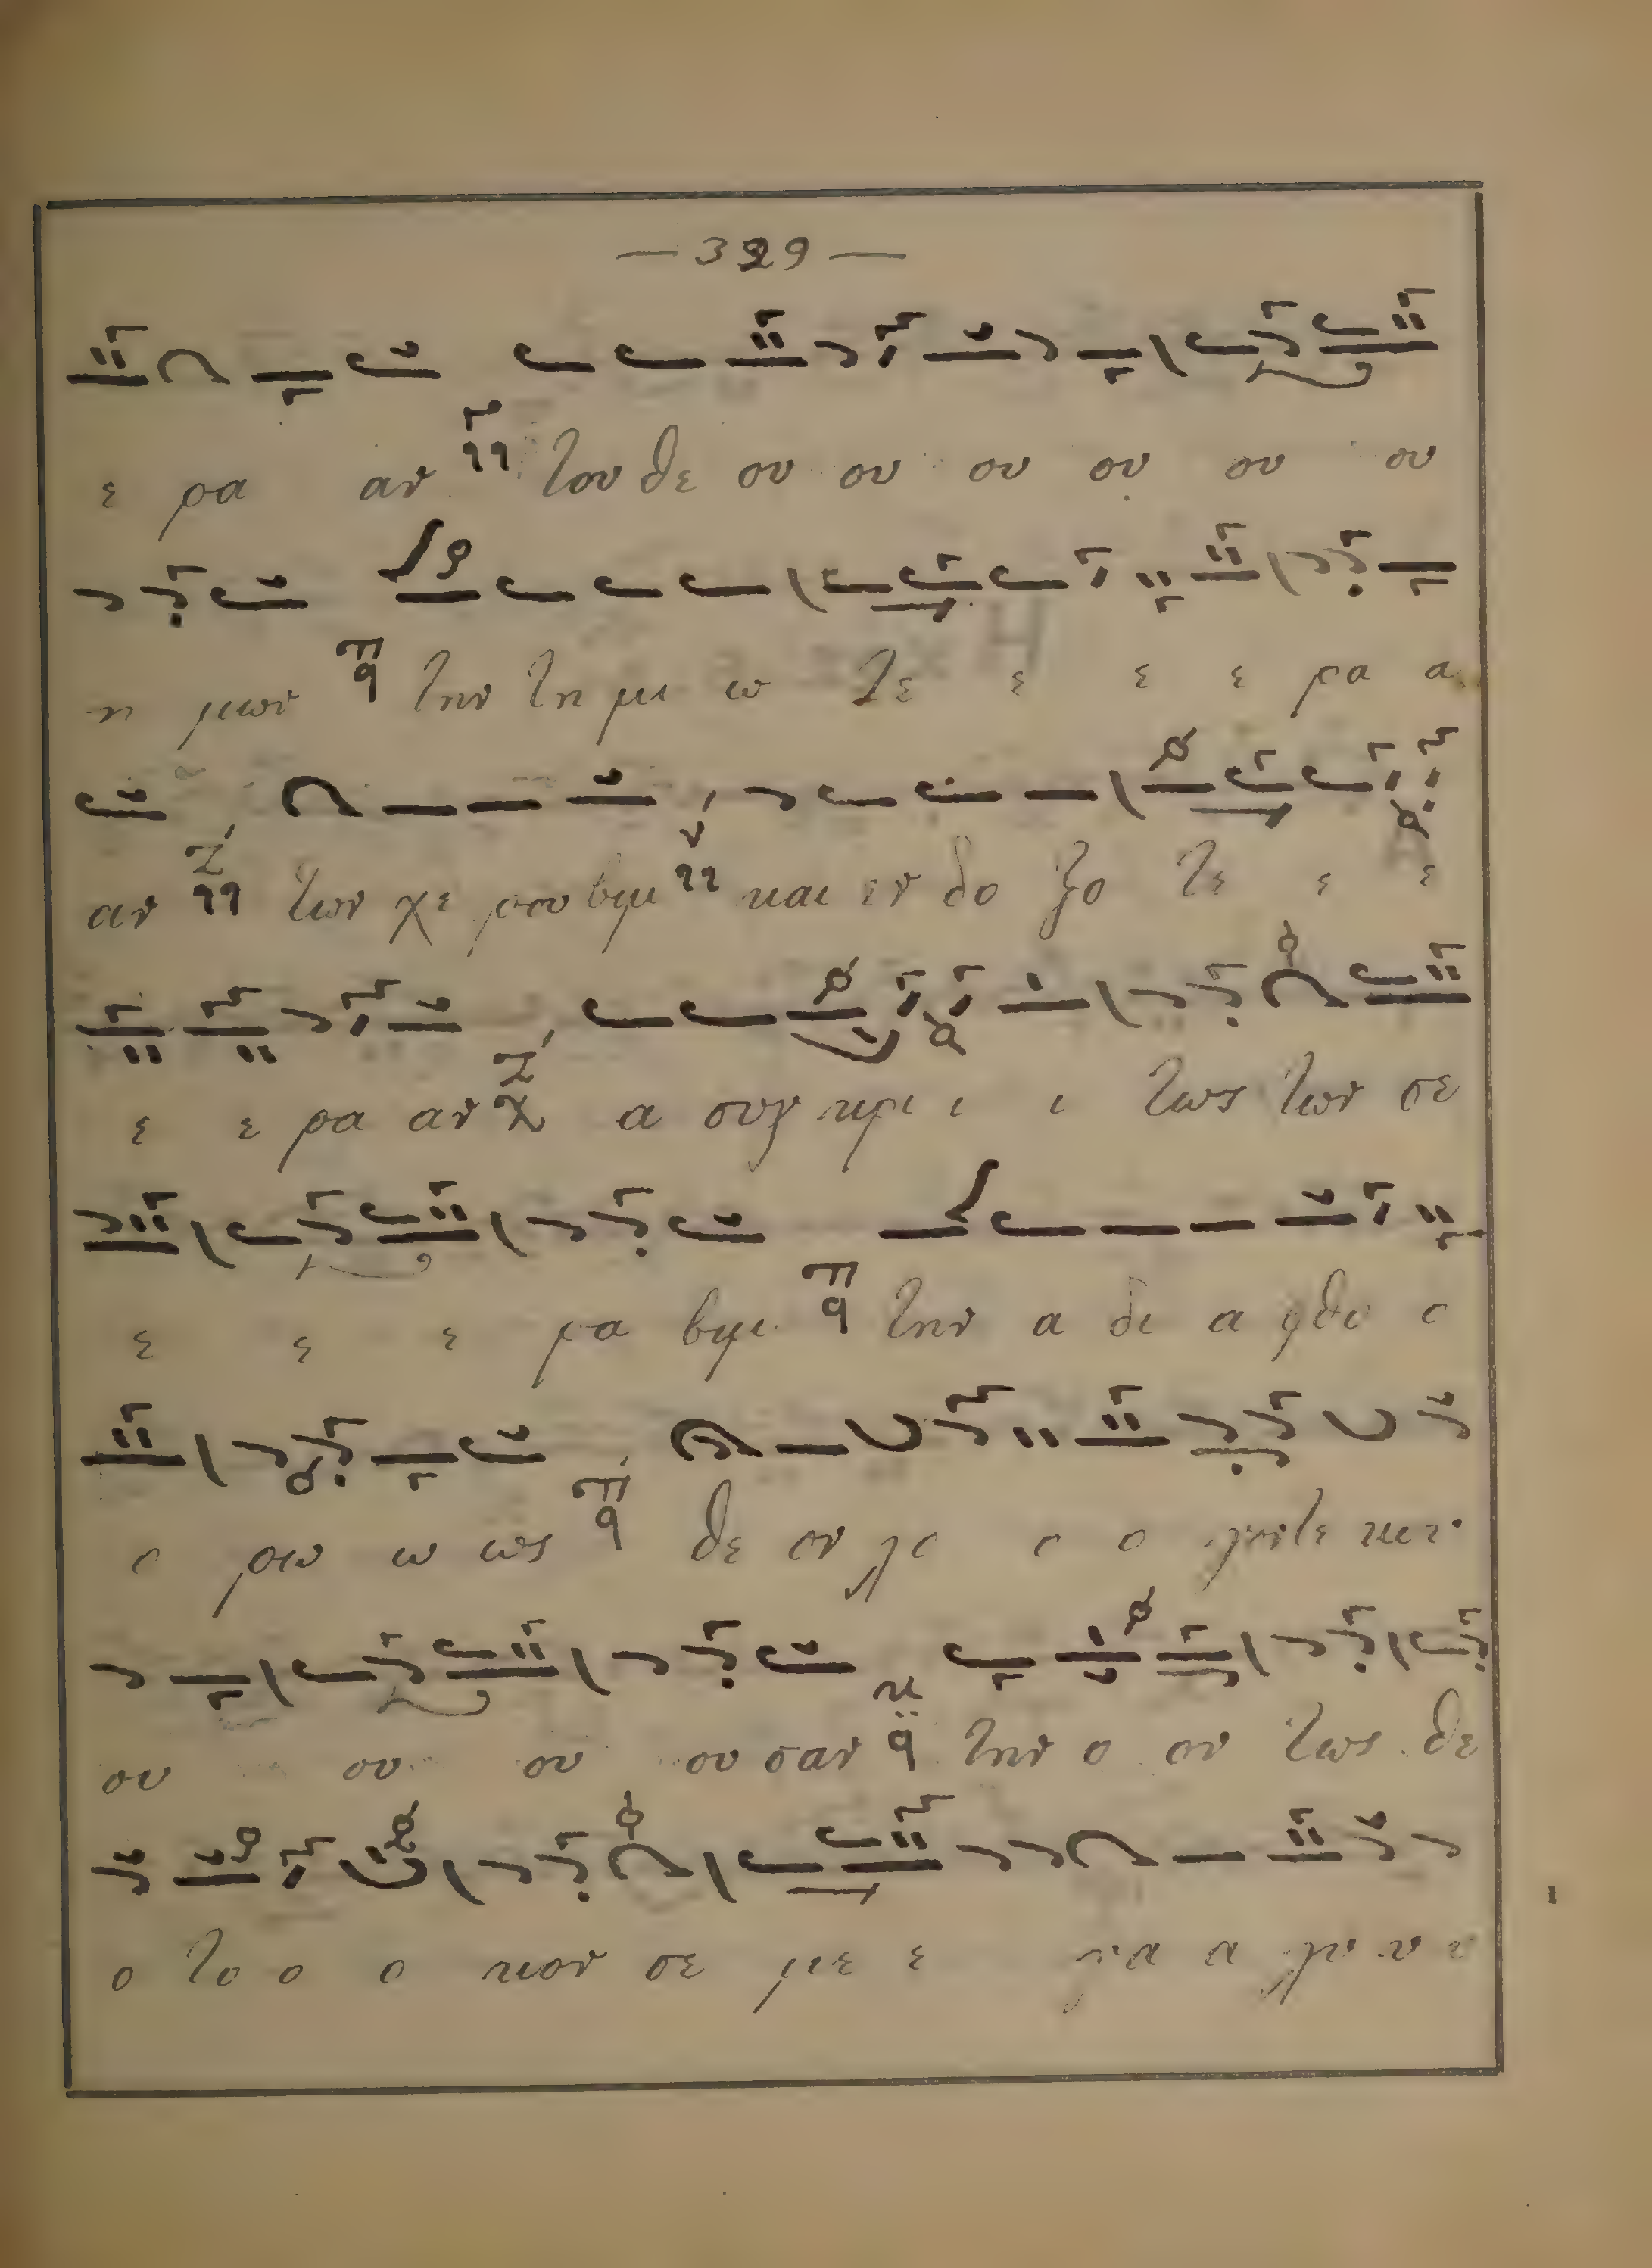 — 329 —
ε ρα αν του θε ου ου ου ου ου ου
η μων την τη μι ω τε ε ε ε ρα α
αν των χε ρου βιμ και εν δο ξο τε ε ε
ε ε ρα αν α συγ κρι ι ι τως των σε
ε ε ε ρα βιμ την α δι α φθο ο
ο ρω ω ως θε ον λο ο ο
ου ου ου ου σαν την ο ον τως θε
ο το ο ο κον σε με ε γα α λυ υ υ